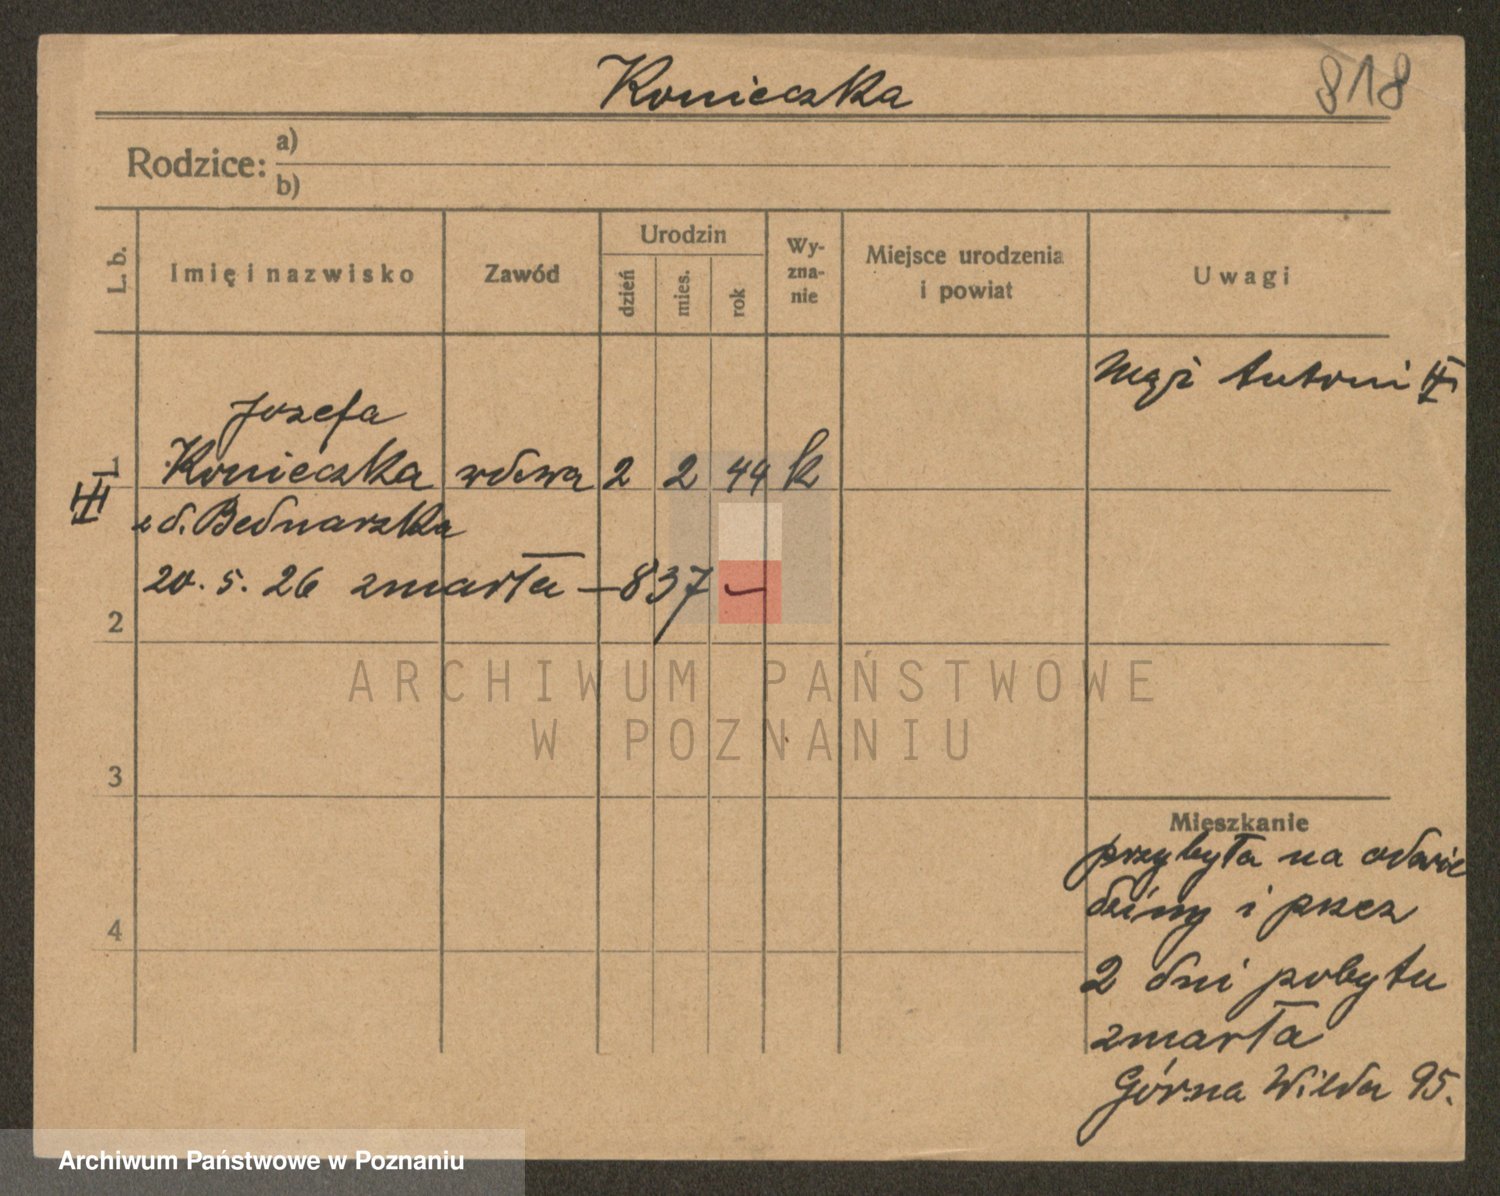 Konieczka
818
Rodzice: a)
b)
L. b.
Imię i nazwisko
Zawód
Urodzin
dzień
mies.
rok
Wy-
zna-
nie
Miejsce urodzenia
i powiat
Uwagi
Mąż Antoni
Jozefa
1 Konieczka wdowa 2 2 44 k
z d. Bednarzka
20. 5. 26 zmarła – 837 –
2
3
4
Mieszkanie
przybyła na odwie
dziny i przez
2 dni pobytu
zmarła
Górna Wilda 95.
ARCHIWUM PAŃSTWOWE
W POZNANIU
Archiwum Państwowe w Poznaniu